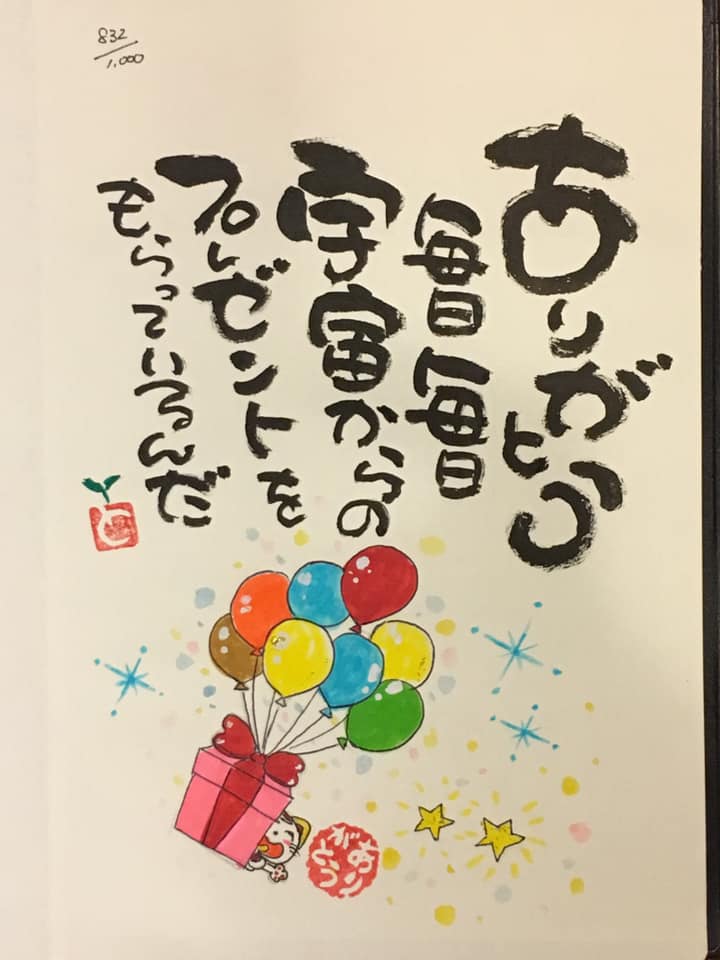 832/1,000
ありがとう
毎日毎日
宇宙からの
プレゼントを
もらっているんだ
と
ありがとう